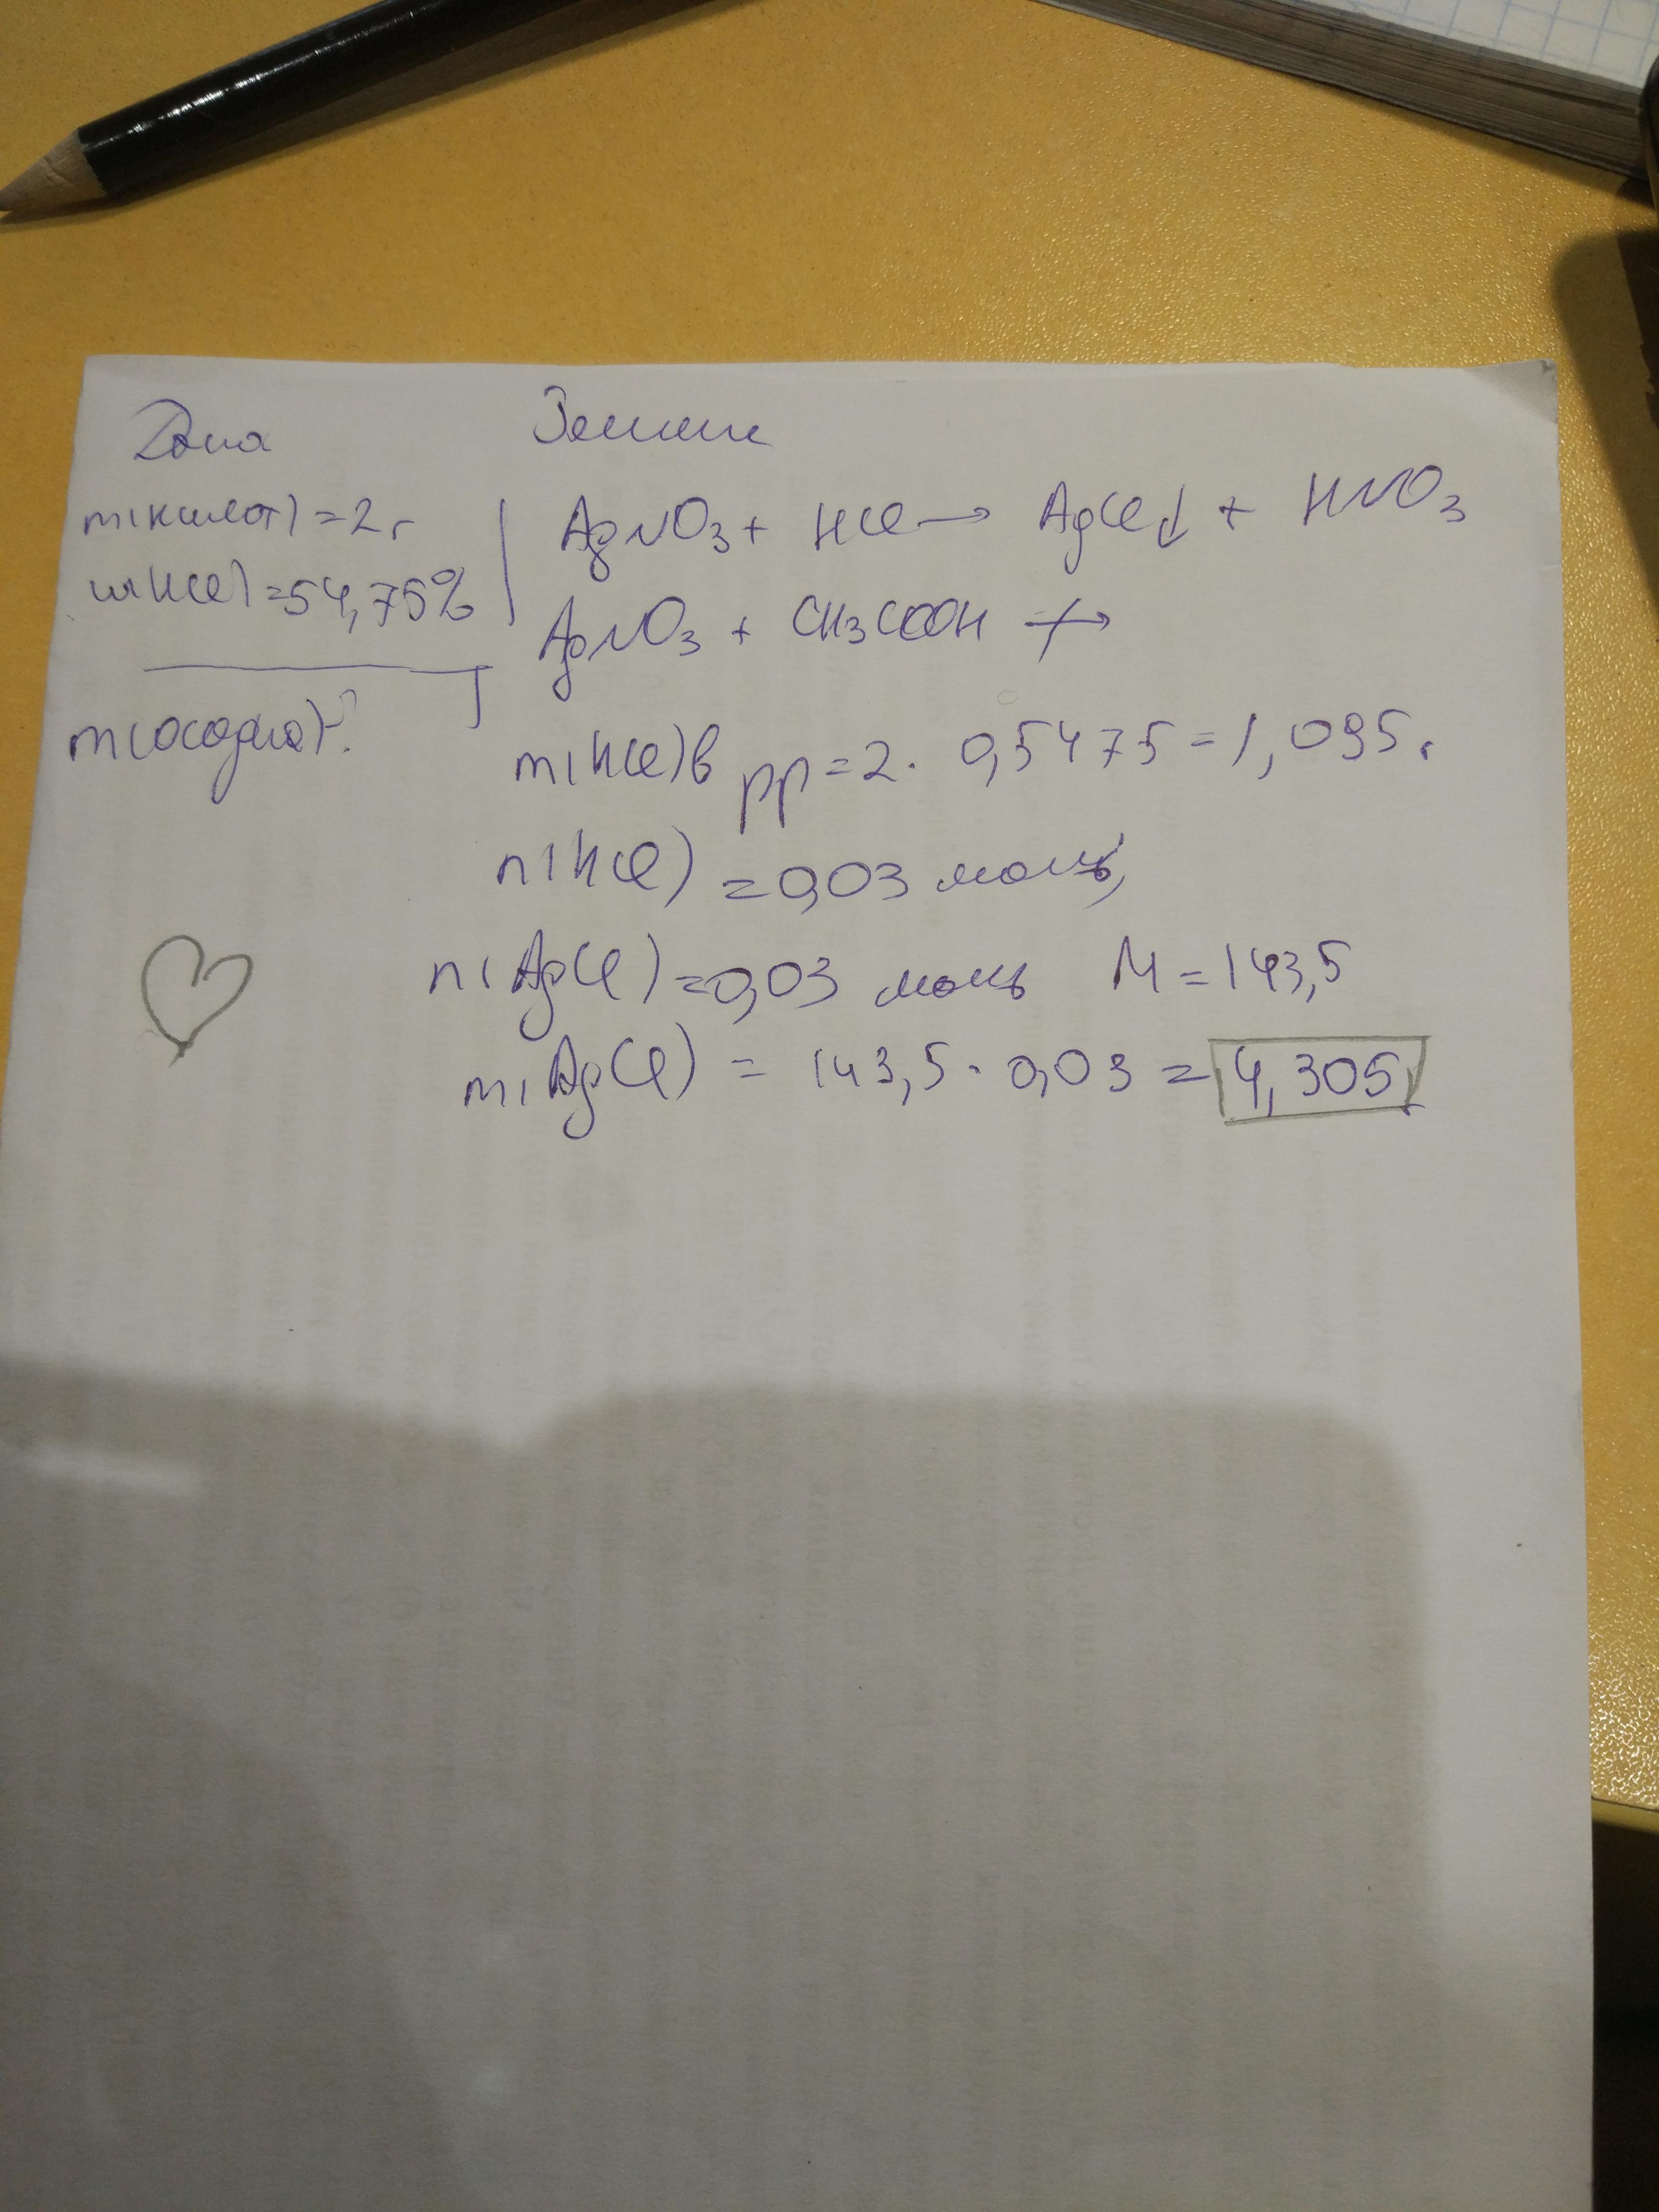 Дано
Решение
m(кислот) = 2 г
w(HCl) = 54,75%
m(осадка) - ?
AgNO3 + HCl → AgCl↓ + HNO3
AgNO3 + CH3COOH ↛
m(HCl) в рр = 2 · 0,5475 = 1,095 г
n(HCl) = 0,03 моль
n(AgCl) = 0,03 моль M = 143,5
m(AgCl) = 143,5 · 0,03 = 4,305 г